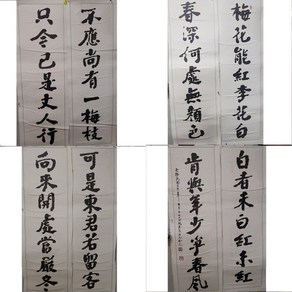 梅花能紅李花白
春深何處無顏色
不應尚有一梅枝
只今已是丈人行
白者未白紅未紅
肯與年少爭春風
可是東君若留客
向來開處當嚴冬